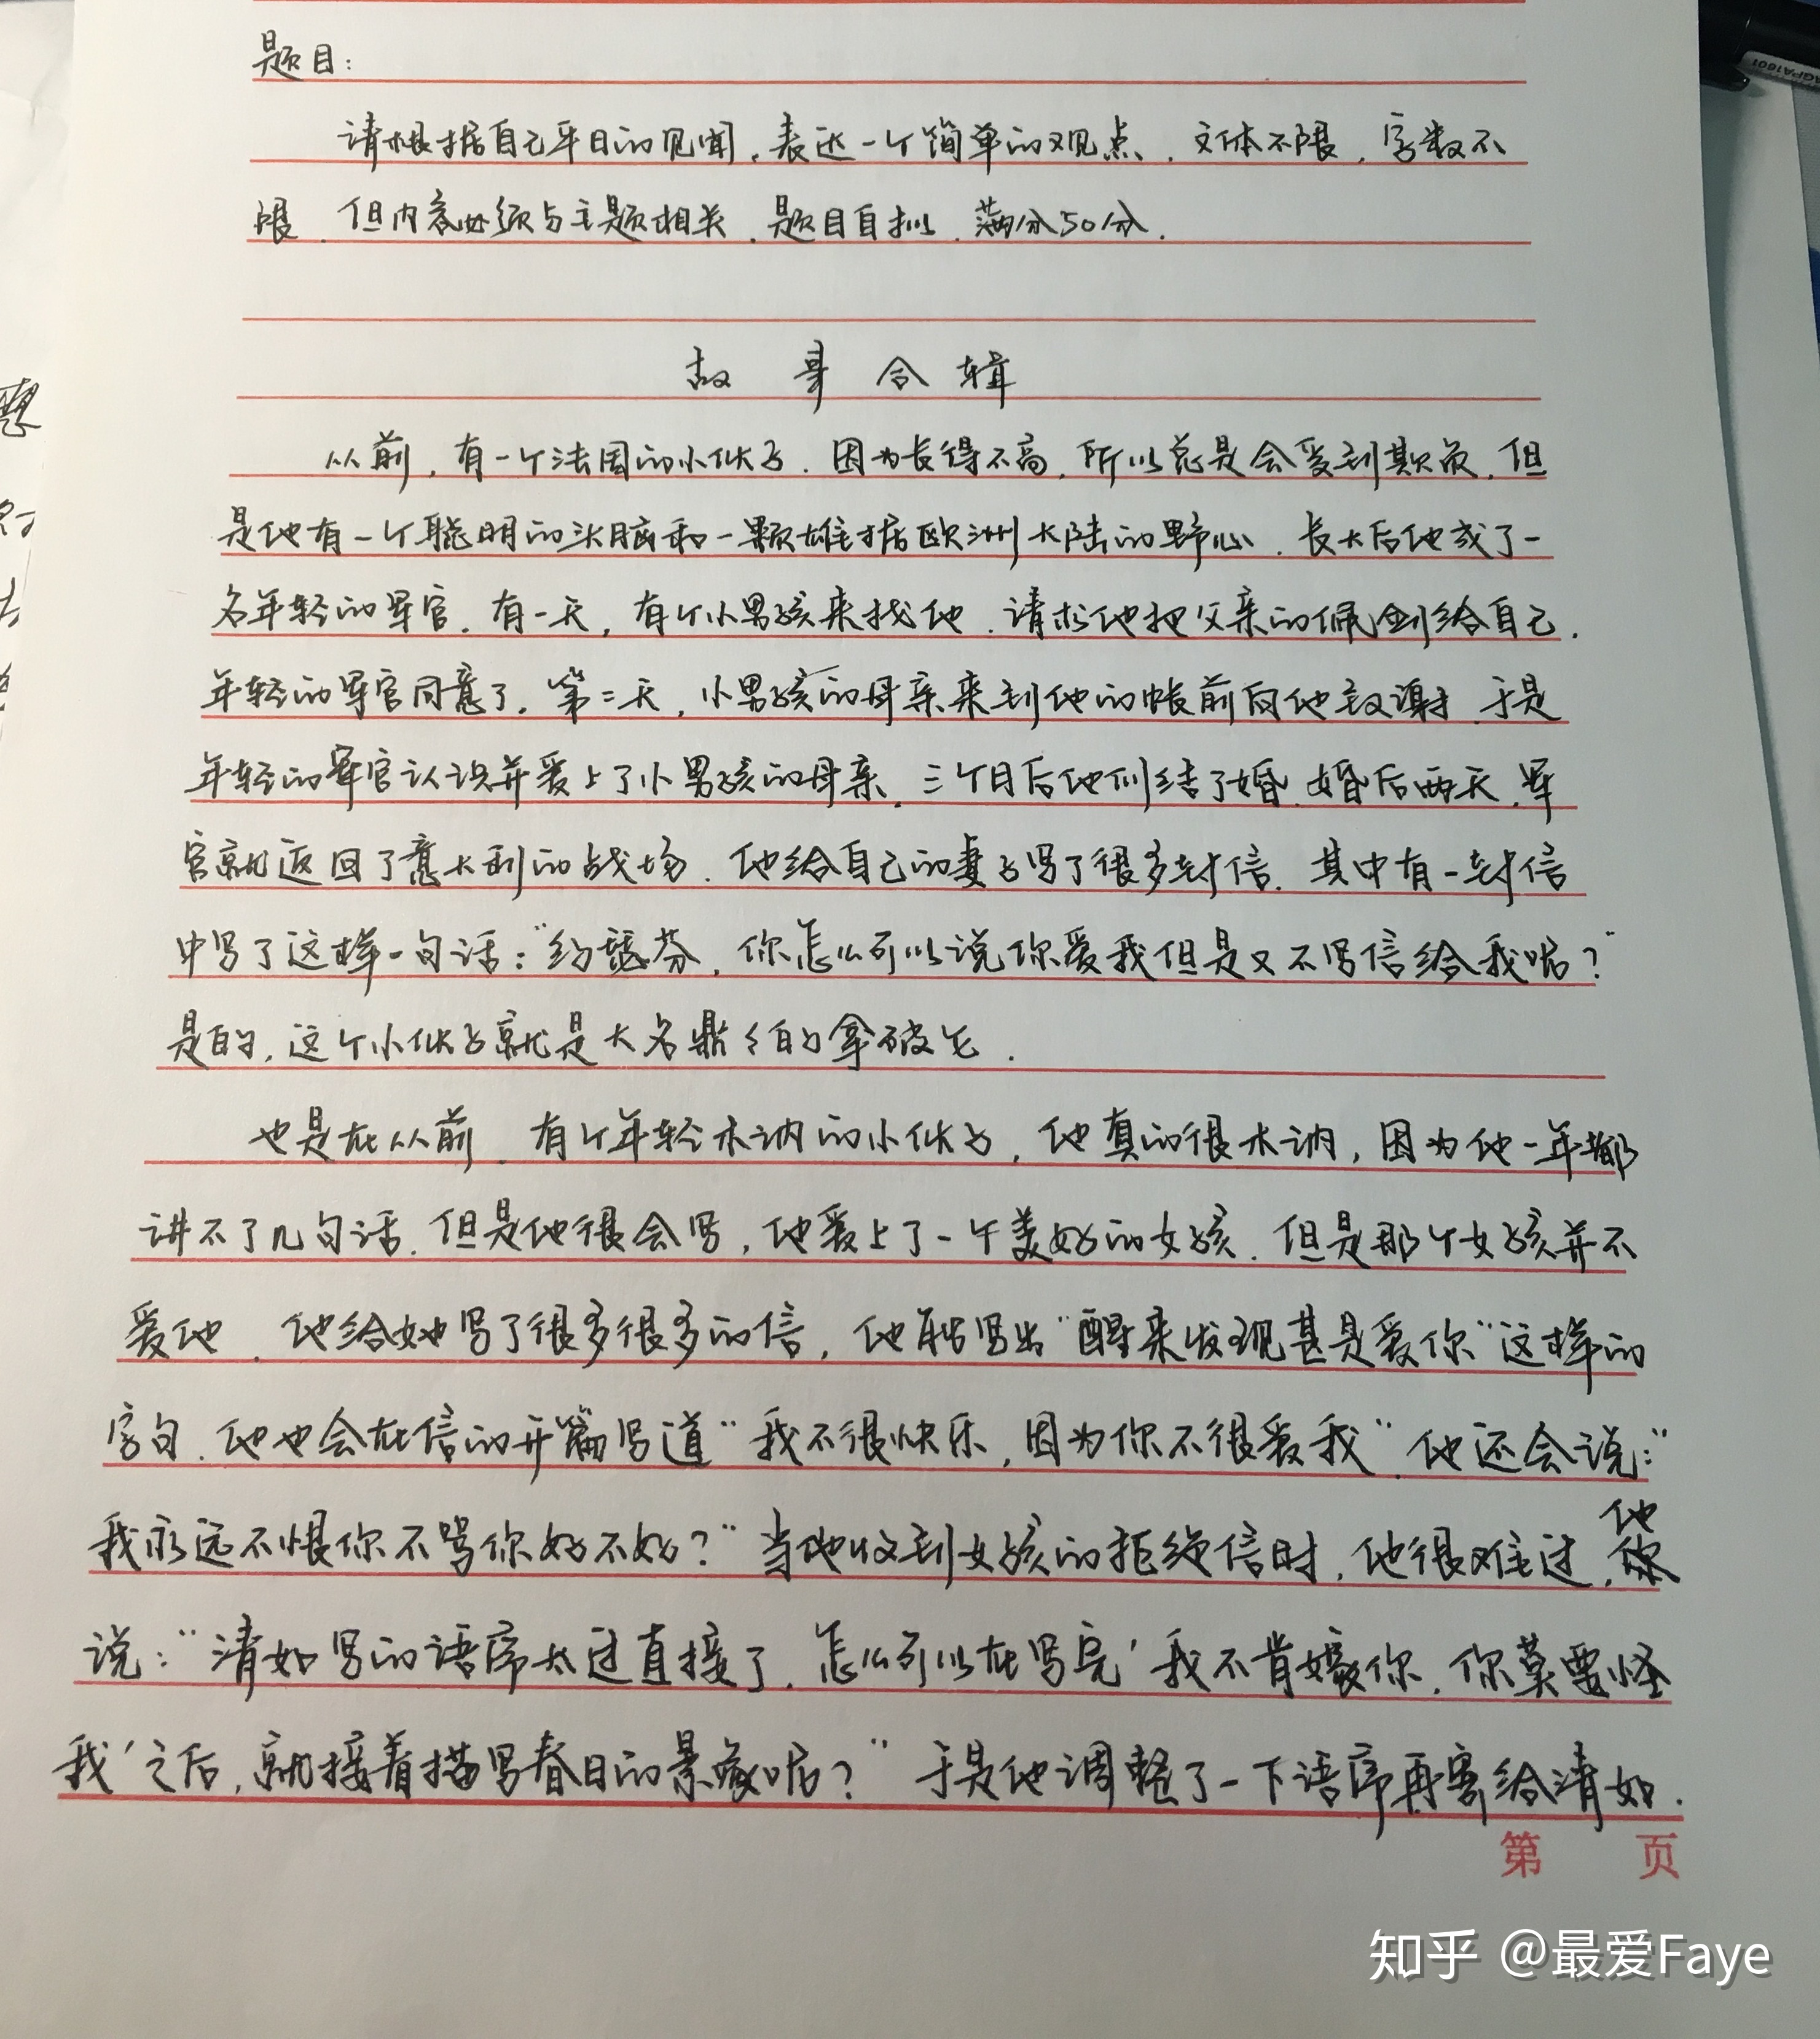 题目：
请根据自己平日的见闻，表达一个简单的观点，文体不限，字数不
限，但内容必须与主题相关，题目自拟，满分50分．
故 事 合 辑
从前，有一个法国的小伙子，因为长得不高，所以总是会受到欺负，但
是他有一个聪明的头脑和一颗雄据欧洲大陆的野心，长大后他成了一
名年轻的军官．有一天，有个小男孩来找他，请求他把父亲的佩剑给自己．
年轻的军官同意了．第二天，小男孩的母亲来到他的帐前向他致谢，于是
年轻的军官认识并爱上了小男孩的母亲，三个月后他们结了婚，婚后两天，军
官就返回了意大利的战场．他给自己的妻子写了很多封信．其中有一封信
中写了这样一句话：“约瑟芬，你怎么可以说你爱我但是又不写信给我呢？”
是的，这个小伙子就是大名鼎々的拿破仑．
也是在从前，有个年轻木讷的小伙子，他真的很木讷，因为他一年都
讲不了几句话．但是他很会写，他爱上了一个美好的女孩．但是那个女孩并不
爱他．他给她写了很多很多的信，他能写出“醒来发现甚是爱你”这样的
字句．他也会在信的开篇写道“我不很快乐，因为你不很爱我”．他还会说：“
我永远不恨你不骂你好不好？”当他收到女孩的拒绝信时，他很难过，他
说：“清如写的语序太过直接了．怎么可以在写完‘我不肯嫁你，你莫要怪
我’之后，就接着描写春日的景致呢？”于是他调整了一下语序再寄给清如．
第 页
知乎 @最爱Faye
AGPA1601